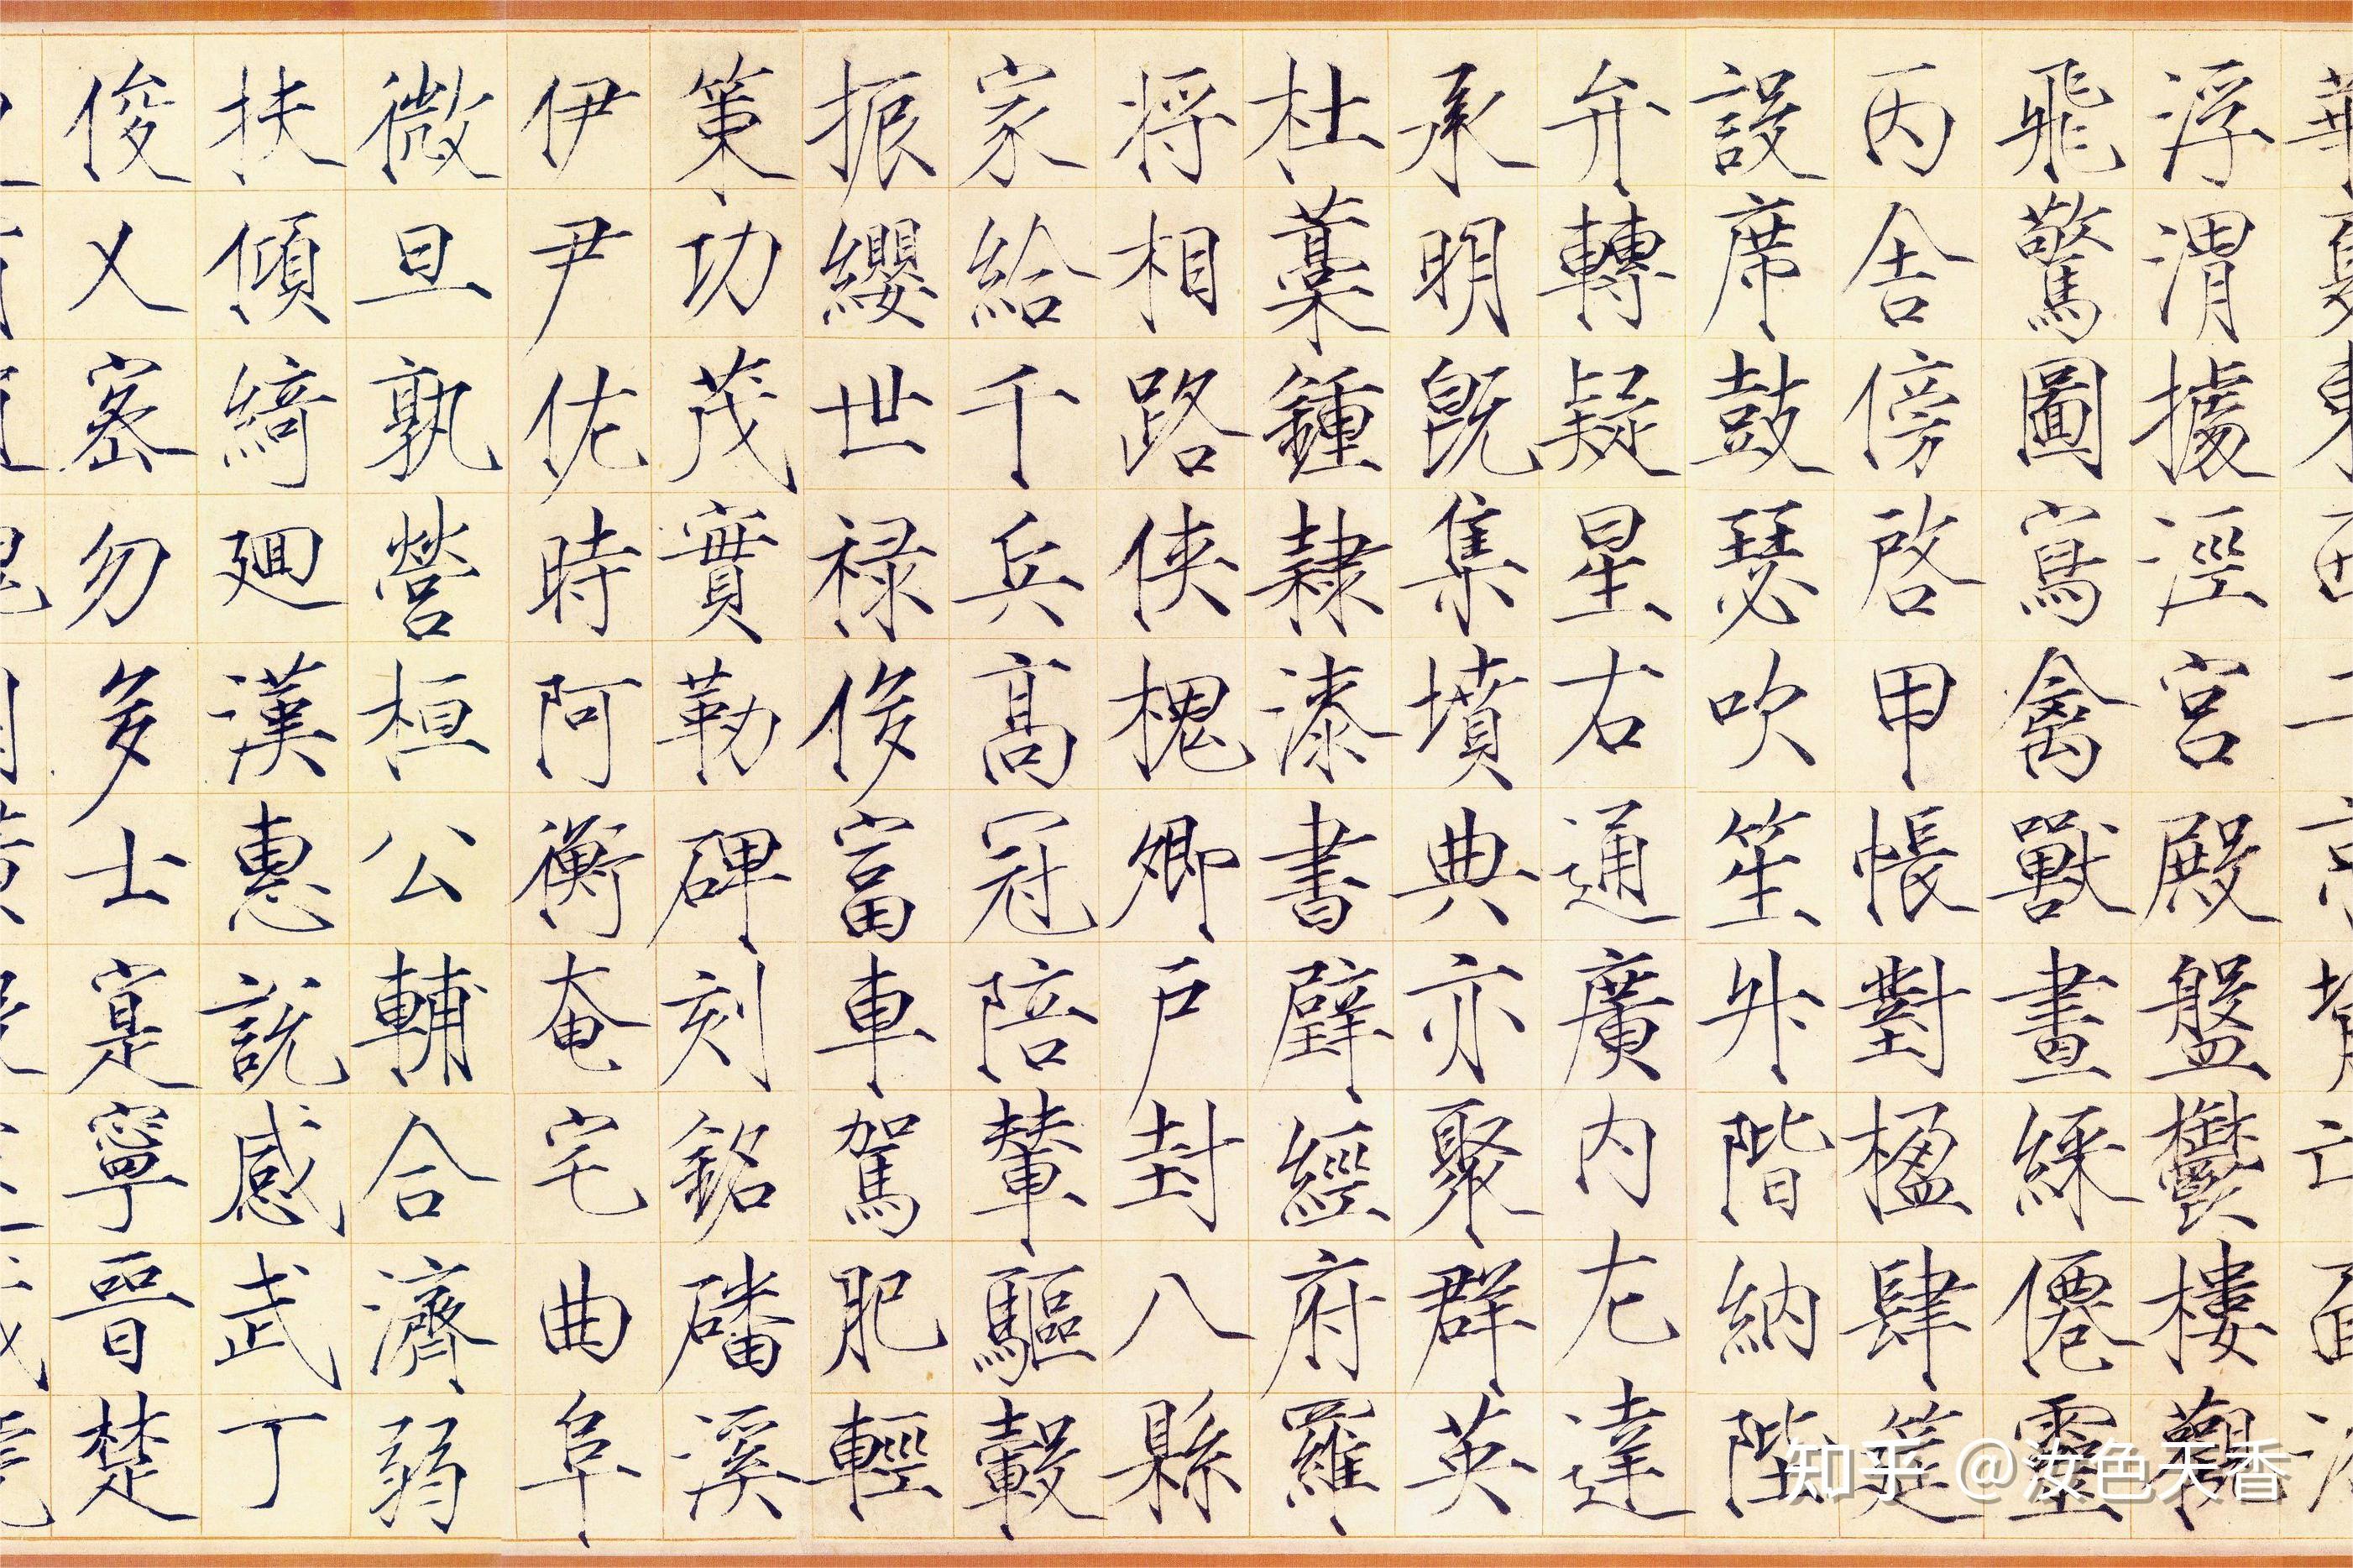 華夏東西二京背亡面洛
浮渭據涇宮殿盤欝樓觀
飛驚圖寫禽獸畫綵僊靈
丙舍傍啓甲帳對楹肆筵
設席鼓瑟吹笙升階納陛
弁轉疑星右通廣內左達
承明既集墳典亦聚群英
杜藁鍾隸漆書壁經府羅
將相路俠槐卿戶封八縣
家給千兵高冠陪輦驅轂
振纓世祿侈富車駕肥輕
策功茂實勒碑刻銘磻溪
伊尹佐時阿衡奄宅曲阜
微旦孰營桓公輔合濟弱
扶傾綺迴漢惠說感武丁
俊乂密勿多士寔寧晉楚
知乎 @汝色天香